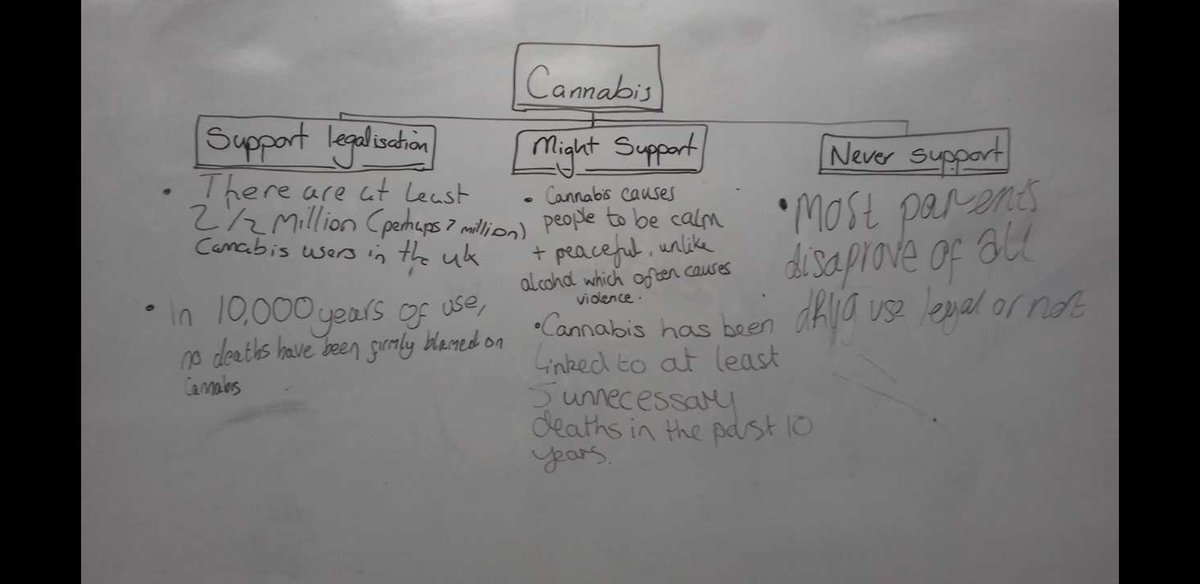 Cannabis
Support legalisation
• There are at least
2 1/2 Million (perhaps 7 million)
Cannabis users in the uk
• In 10,000 years of use,
no deaths have been firmly blamed on
Cannabis
Might Support
• Cannabis causes
people to be calm
+ peaceful, unlike
alcohol which often causes
violence.
• Cannabis has been
linked to at least
5 unnecessary
deaths in the past 10
years.
Never support
• Most parents
disaprove of all
drug use legal or not